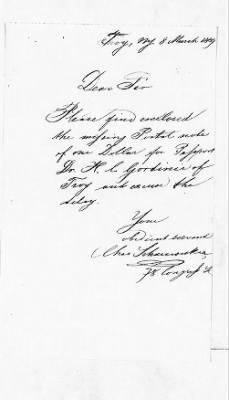 Troy, NY 8 March 1889
Dear Sir
Please find enclosed
the missing Postal note
of one Dollar for Passport
Dr. H. C. Gordinier of
Troy and excuse the
delay.
Your
obedient servant
Chas
78 Congress St